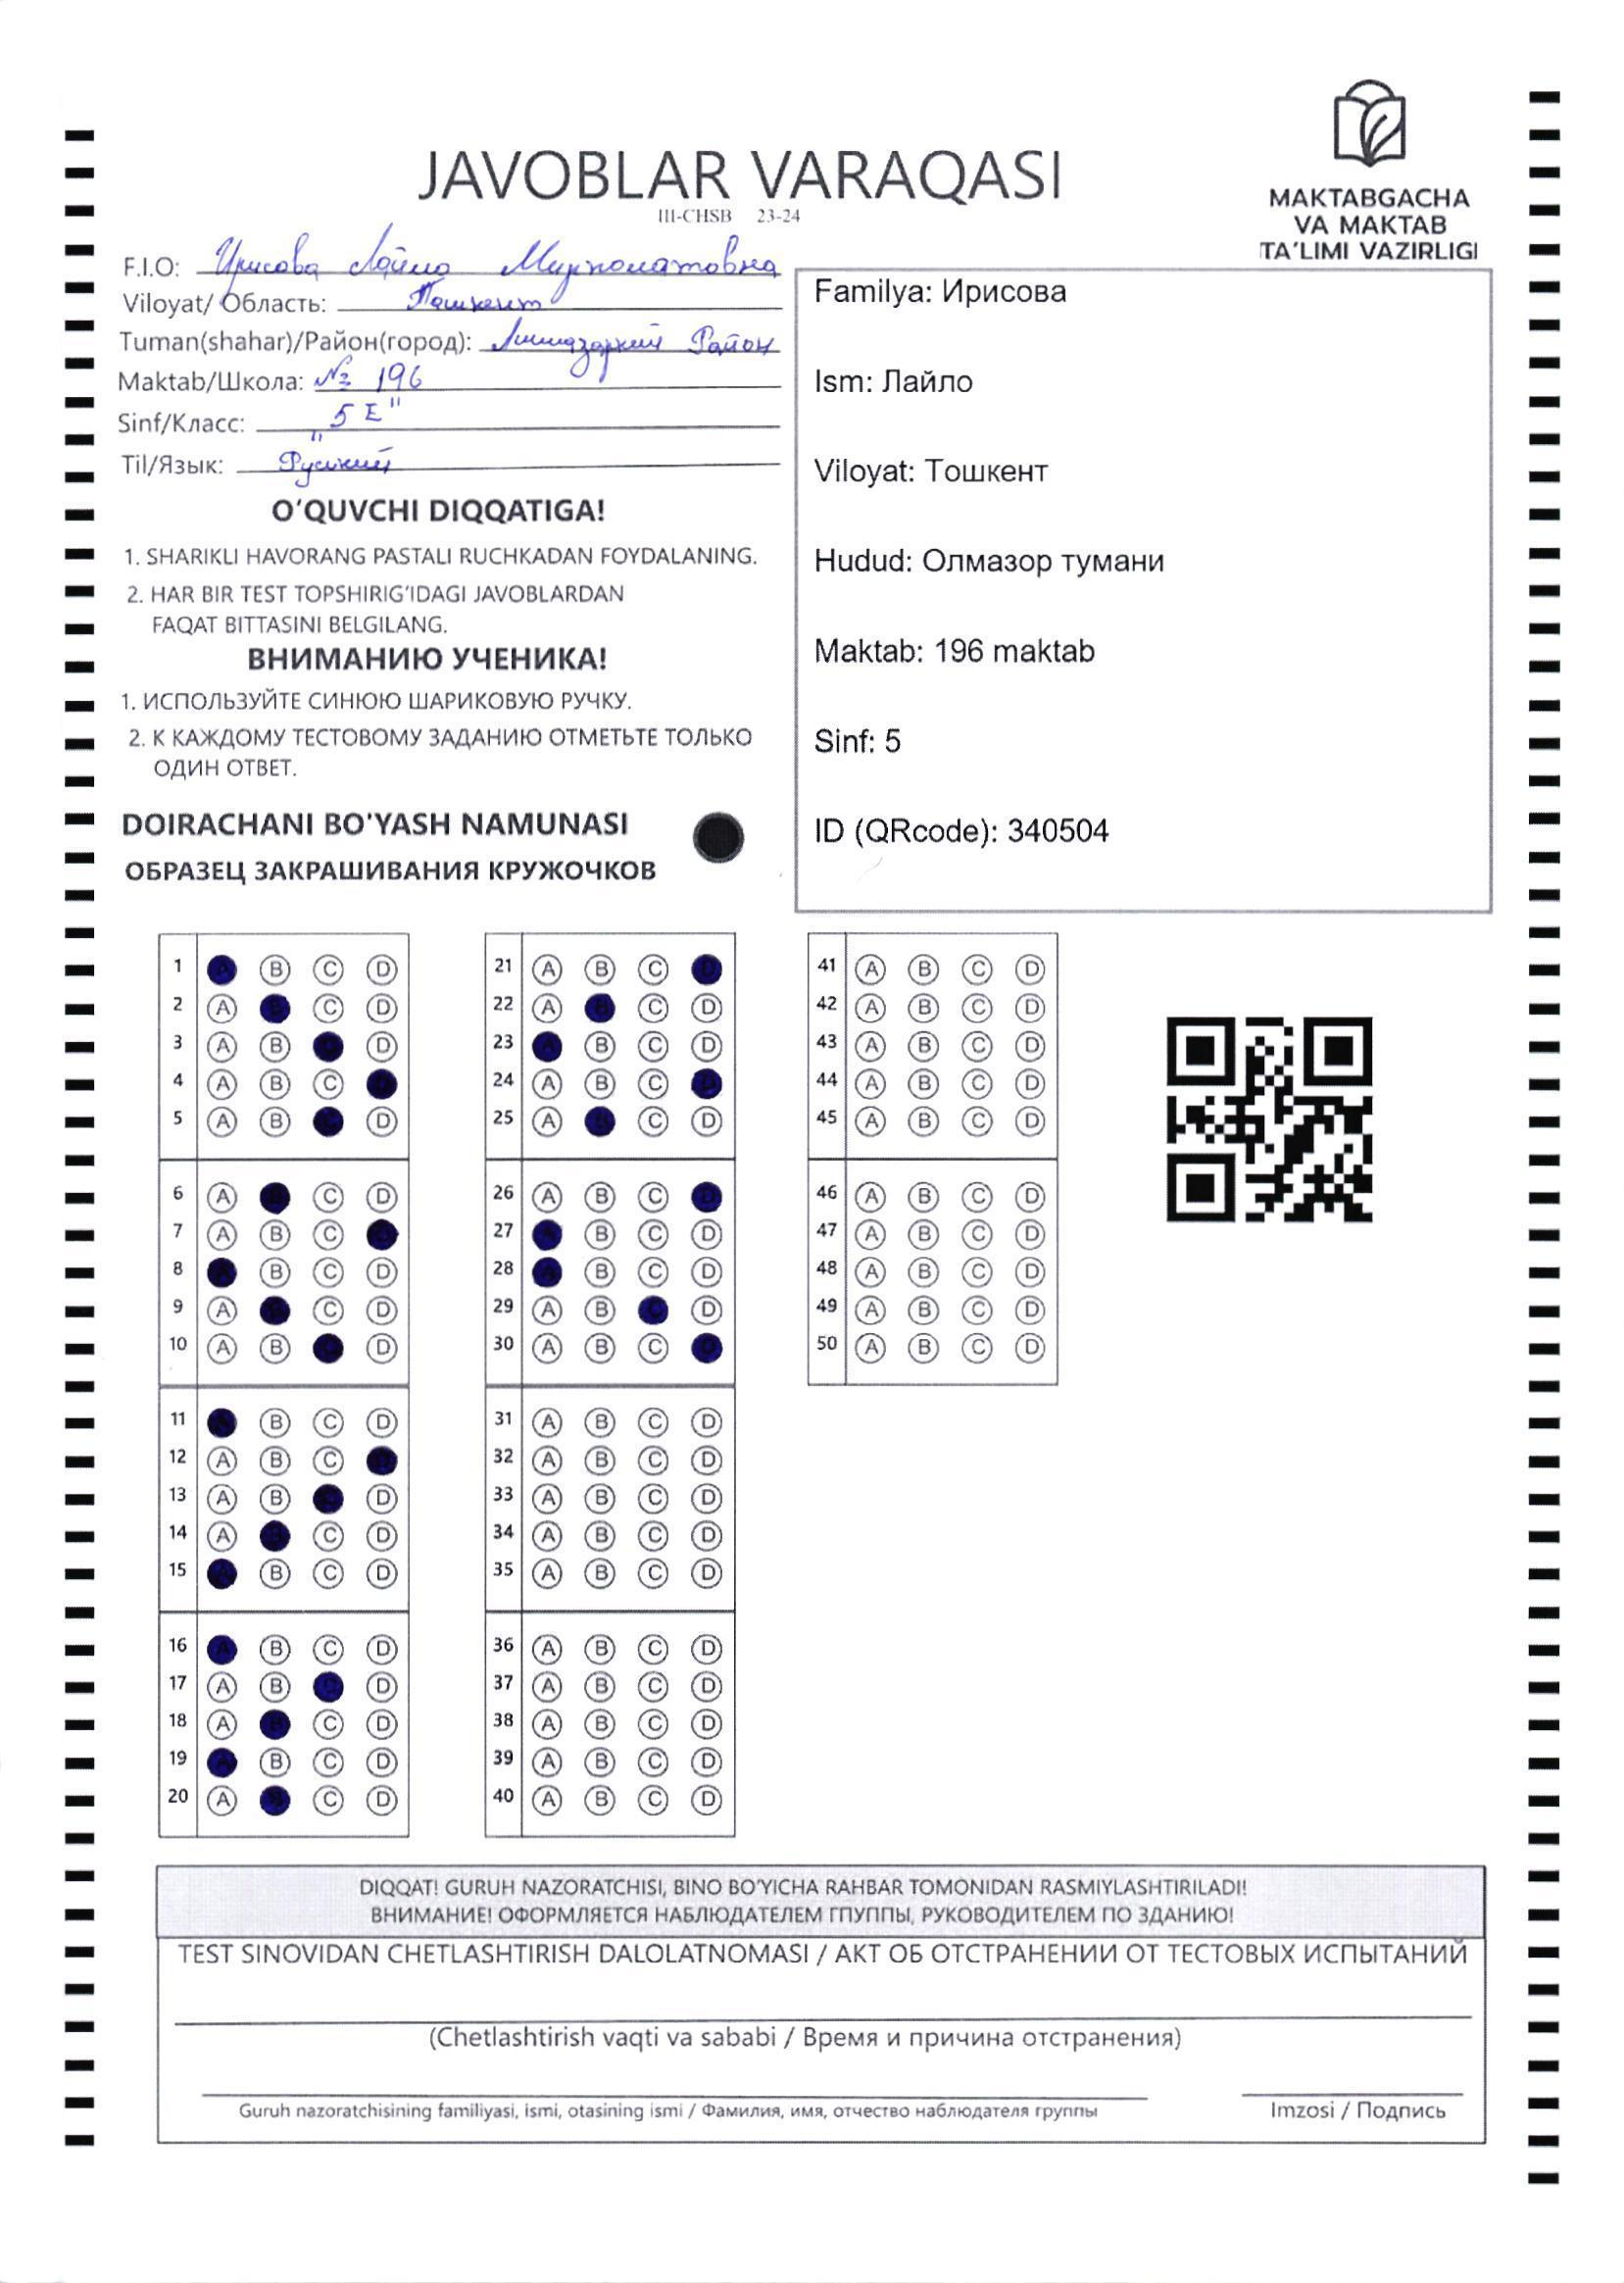 JAVOBLAR VARAQASI
III-CHSB 23-24
MAKTABGACHA
VA MAKTAB
TA'LIMI VAZIRLIGI
F.I.O: Ирисова Лайло Мирполатовна
Viloyat/ Область: Ташкент
Tuman(shahar)/Район(город): Район
Maktab/Школа: № 196
Sinf/Класс: "5 Е"
Til/Язык: Руский
O'QUVCHI DIQQATIGA!
1. SHARIKLI HAVORANG PASTALI RUCHKADAN FOYDALANING.
2. HAR BIR TEST TOPSHIRIG'IDAGI JAVOBLARDAN
FAQAT BITTASINI BELGILANG.
ВНИМАНИЮ УЧЕНИКА!
1. ИСПОЛЬЗУЙТЕ СИНЮЮ ШАРИКОВУЮ РУЧКУ.
2. К КАЖДОМУ ТЕСТОВОМУ ЗАДАНИЮ ОТМЕТЬТЕ ТОЛЬКО
ОДИН ОТВЕТ.
DOIRACHANI BO'YASH NAMUNASI
ОБРАЗЕЦ ЗАКРАШИВАНИЯ КРУЖОЧКОВ
Familya: Ирисова
Ism: Лайло
Viloyat: Тошкент
Hudud: Олмазор тумани
Maktab: 196 maktab
Sinf: 5
ID (QRcode): 340504
1 A B C D
2 A B C D
3 A B C D
4 A B C D
5 A B C D
6 A B C D
7 A B C D
8 A B C D
9 A B C D
10 A B C D
11 A B C D
12 A B C D
13 A B C D
14 A B C D
15 A B C D
16 A B C D
17 A B C D
18 A B C D
19 A B C D
20 A B C D
21 A B C D
22 A B C D
23 A B C D
24 A B C D
25 A B C D
26 A B C D
27 A B C D
28 A B C D
29 A B C D
30 A B C D
31 A B C D
32 A B C D
33 A B C D
34 A B C D
35 A B C D
36 A B C D
37 A B C D
38 A B C D
39 A B C D
40 A B C D
41 A B C D
42 A B C D
43 A B C D
44 A B C D
45 A B C D
46 A B C D
47 A B C D
48 A B C D
49 A B C D
50 A B C D
DIQQAT! GURUH NAZORATCHISI, BINO BO'YICHA RAHBAR TOMONIDAN RASMIYLASHTIRILADI!
ВНИМАНИЕ! ОФОРМЛЯЕТСЯ НАБЛЮДАТЕЛЕМ ГПУППЫ, РУКОВОДИТЕЛЕМ ПО ЗДАНИЮ!
TEST SINOVIDAN CHETLASHTIRISH DALOLATNOMASI / АКТ ОБ ОТСТРАНЕНИИ ОТ ТЕСТОВЫХ ИСПЫТАНИЙ
(Chetlashtirish vaqti va sababi / Время и причина отстранения)
Guruh nazoratchisining familiyasi, ismi, otasining ismi / Фамилия, имя, отчество наблюдателя группы
Imzosi / Подпись